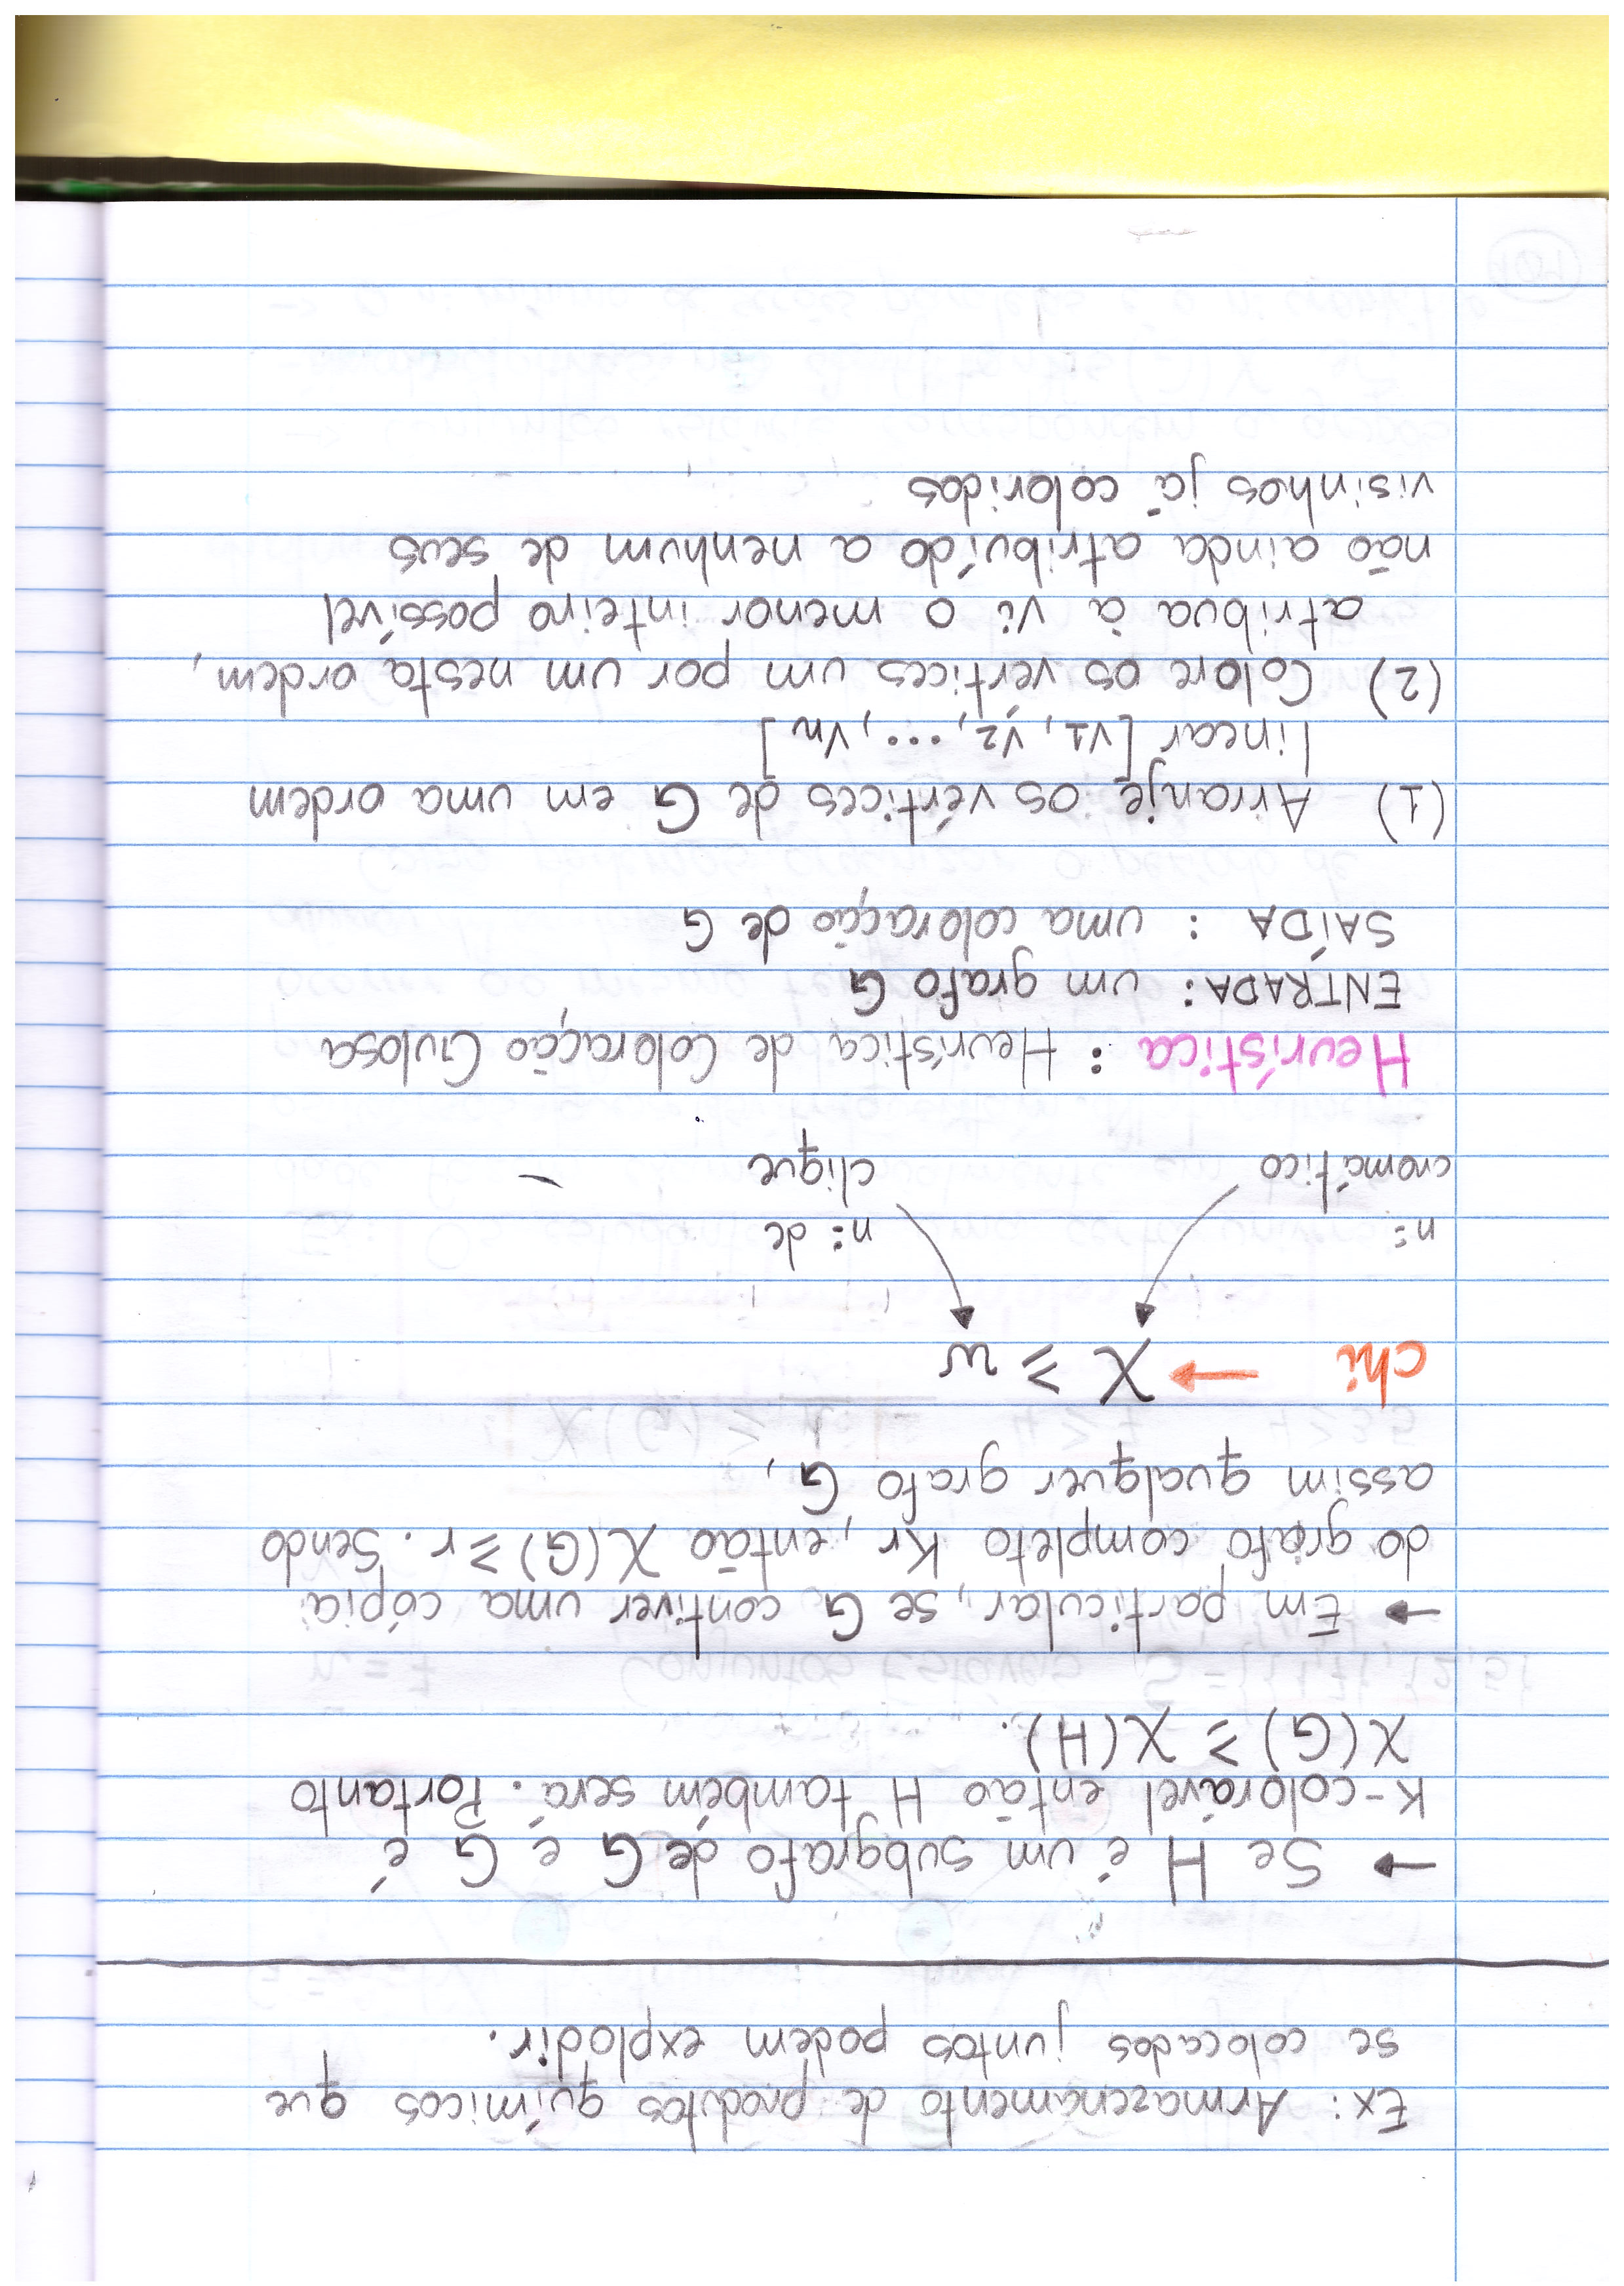 Ex: Armazenamento de produtos químicos que
se colocados juntos podem explodir.
→ Se H é um subgrafo de G e G é
K-colorável então H também será. Portanto
χ(G) ≥ χ(H).
→ Em particular, se G contiver uma cópia
do grafo completo Kr, então χ(G) ≥ r. Sendo
assim qualquer grafo G,
chi → χ ≥ w
n= n= de
cromático clique
Heurística : Heurística de Coloração Gulosa
ENTRADA: um grafo G
SAÍDA : uma coloração de G
(1) Arranje os vértices de G em uma ordem
linear [v1, v2, ..., vn]
(2) Colore os vértices um por um nesta ordem,
atribua à vi o menor inteiro possível
não ainda atribuído a nenhum de seus
visinhos já coloridos